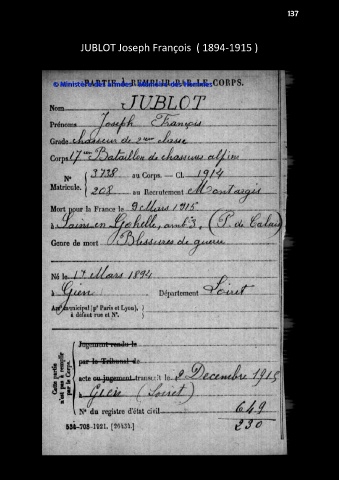 137
JUBLOT Joseph François ( 1894-1915 )
PARTIE À REMPLIR PAR LE CORPS.
© Ministère des armées - Mémoire des Hommes
Nom JUBLOT
Prénoms Joseph François
Grade chasseur de 2ème classe
Corps 17me Bataillon de chasseurs alpins
N° 3738 au Corps. — Cl. 1914
Matricule. 208 au Recrutement Montargis
Mort pour la France le 9 Mars 1915
à Sains-en-Gohelle, (P. de Calais)
Genre de mort Blessures de guerre
Né le 17 Mars 1894
à Gien Département Loiret
Arr municipal (pr Paris et Lyon),
à défaut rue et N°.
Cette partie n'est pas à remplir par le Corps.
Jugement rendu le
par le Tribunal de
acte ou jugement transcrit le 2 Decembre 1915
à Gien (Loiret)
N° du registre d'état civil 649
230
534-708-1921. [26434.]